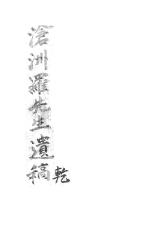 滄洲羅先生遺稿
乾